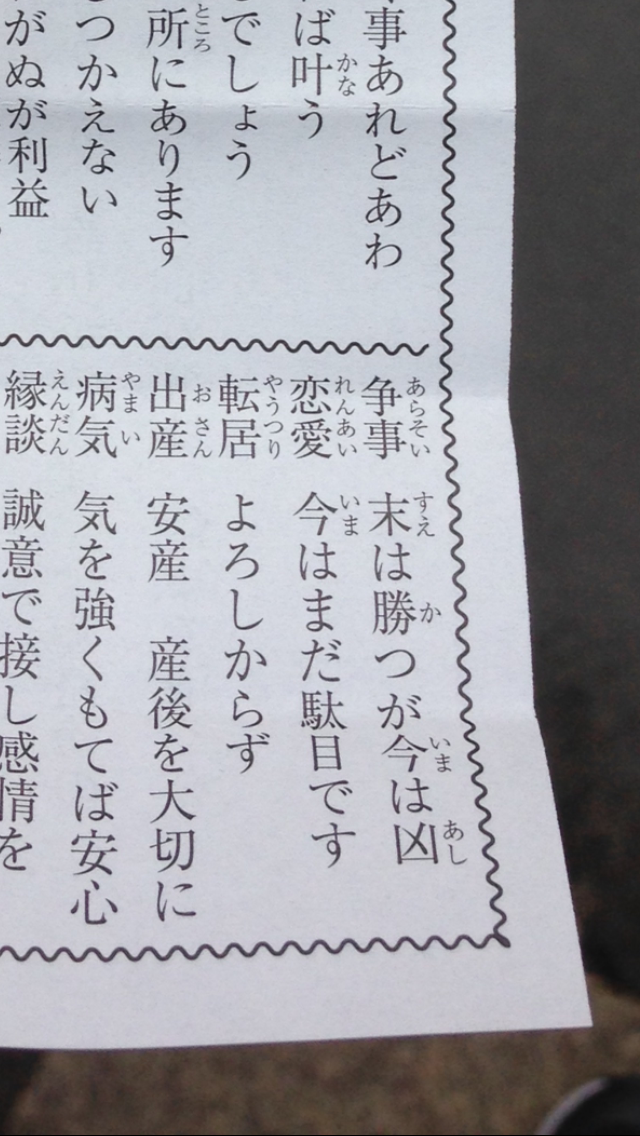 事あれどあわ
ば叶う
でしょう
所にあります
つかえない
がぬが利益
争事 末は勝つが今は凶
恋愛 今はまだ駄目です
転居 よろしからず
出産 安産 産後を大切に
病気 気を強くもてば安心
縁談 誠意で接し感情を